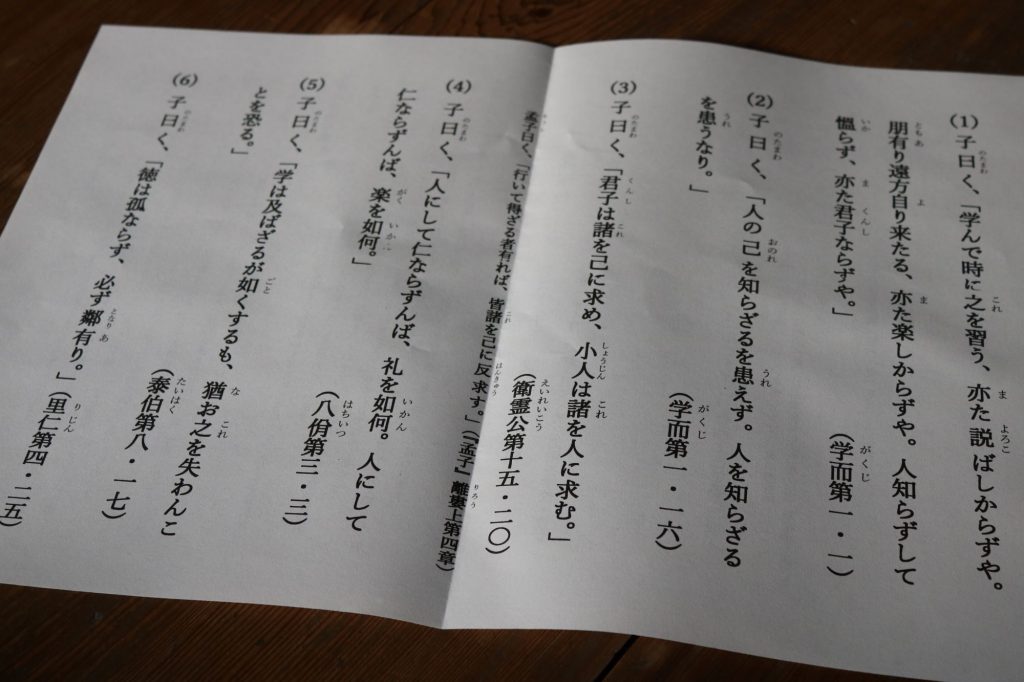 (1) 子曰く、「学んで時に之を習う、亦た説ばしからずや。
朋有り遠方自り来たる、亦た楽しからずや。人知らずして
慍らず、亦た君子ならずや。」（学而第一・一）
(2) 子曰く、「人の己を知らざるを患えず。人を知らざる
を患うなり。」（学而第一・一六）
(3) 子曰く、「君子は諸を己に求め、小人は諸を人に求む。」
（衛霊公第十五・二〇）
孟子曰く、「行いて得ざる者有れば、皆諸を己に反求す。」（『孟子』離婁上第四章）
(4) 子曰く、「人にして仁ならずんば、礼を如何。人にして
仁ならずんば、楽を如何。」（八佾第三・三）
(5) 子曰く、「学は及ばざるが如くするも、猶お之を失わんこ
とを恐る。」（泰伯第八・一七）
(6) 子曰く、「徳は孤ならず、必ず鄰有り。」（里仁第四・二五）